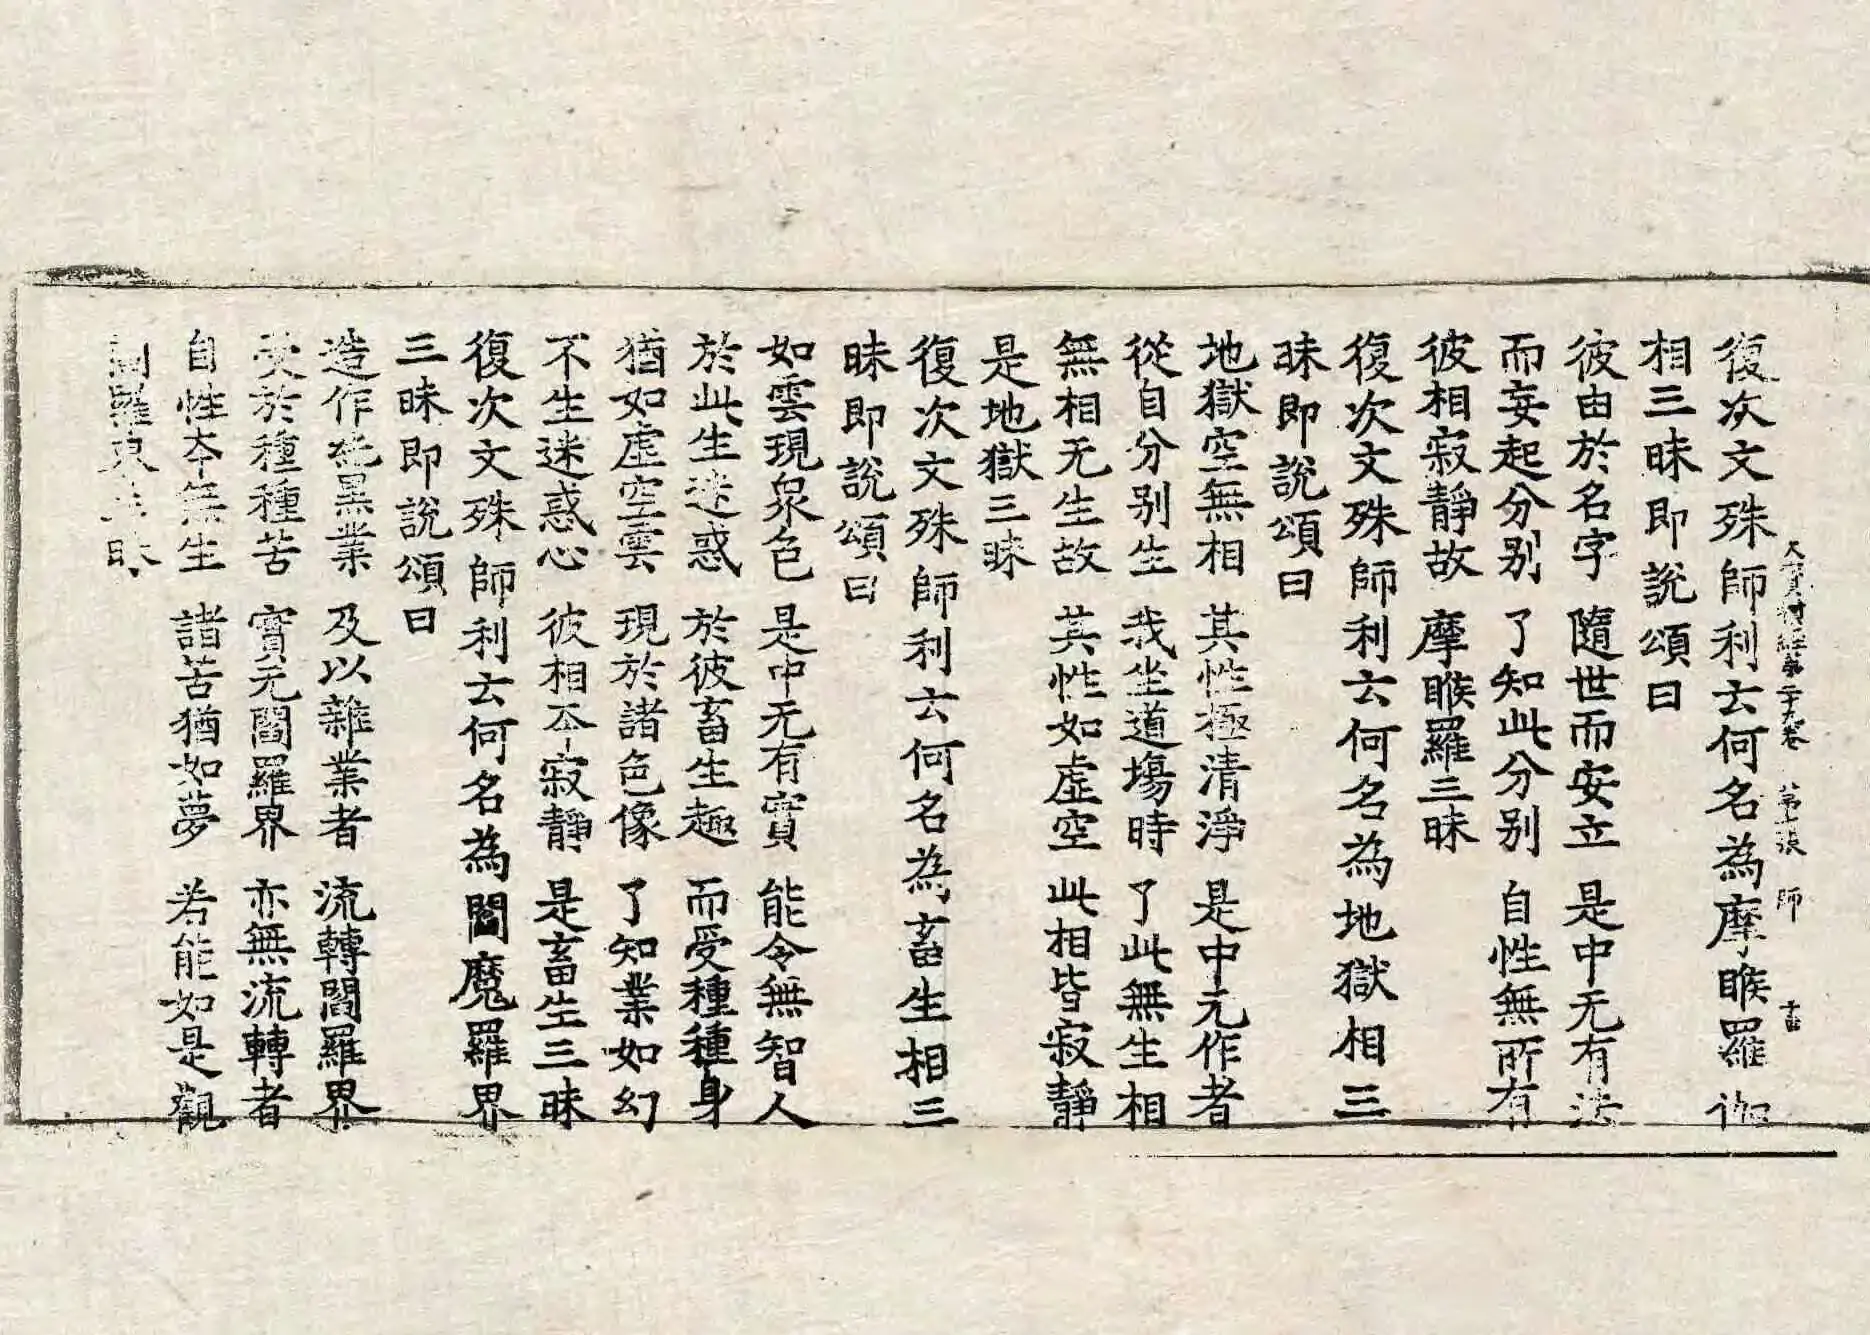 大寶積經第二十九卷 第 張 師
復次文殊師利云何名為摩睺羅伽
相三昧即說頌曰
彼由於名字 隨世而安立 是中无有法
而妄起分別 了知此分別 自性無所有
彼相寂靜故 摩睺羅三昧
復次文殊師利云何名為地獄相三
昧即說頌曰
地獄空無相 其性極清淨 是中无作者
從自分別生 我坐道場時 了此無生相
無相无生故 其性如虛空 此相皆寂靜
是地獄三昧
復次文殊師利云何名為畜生相三
昧即說頌曰
如雲現眾色 是中无有實 能令無智人
於此生迷惑 於彼畜生趣 而受種種身
猶如虛空雲 現於諸色像 了知業如幻
不生迷惑心 彼相夲寂靜 是畜生三昧
復次文殊師利云何名為閻魔羅界
三昧即說頌曰
造作純黑業 及以雜業者 流轉閻羅界
受於種種苦 實无閻羅界 亦無流轉者
自性夲無生 諸苦猶如夢 若能如是觀
羅界三昧